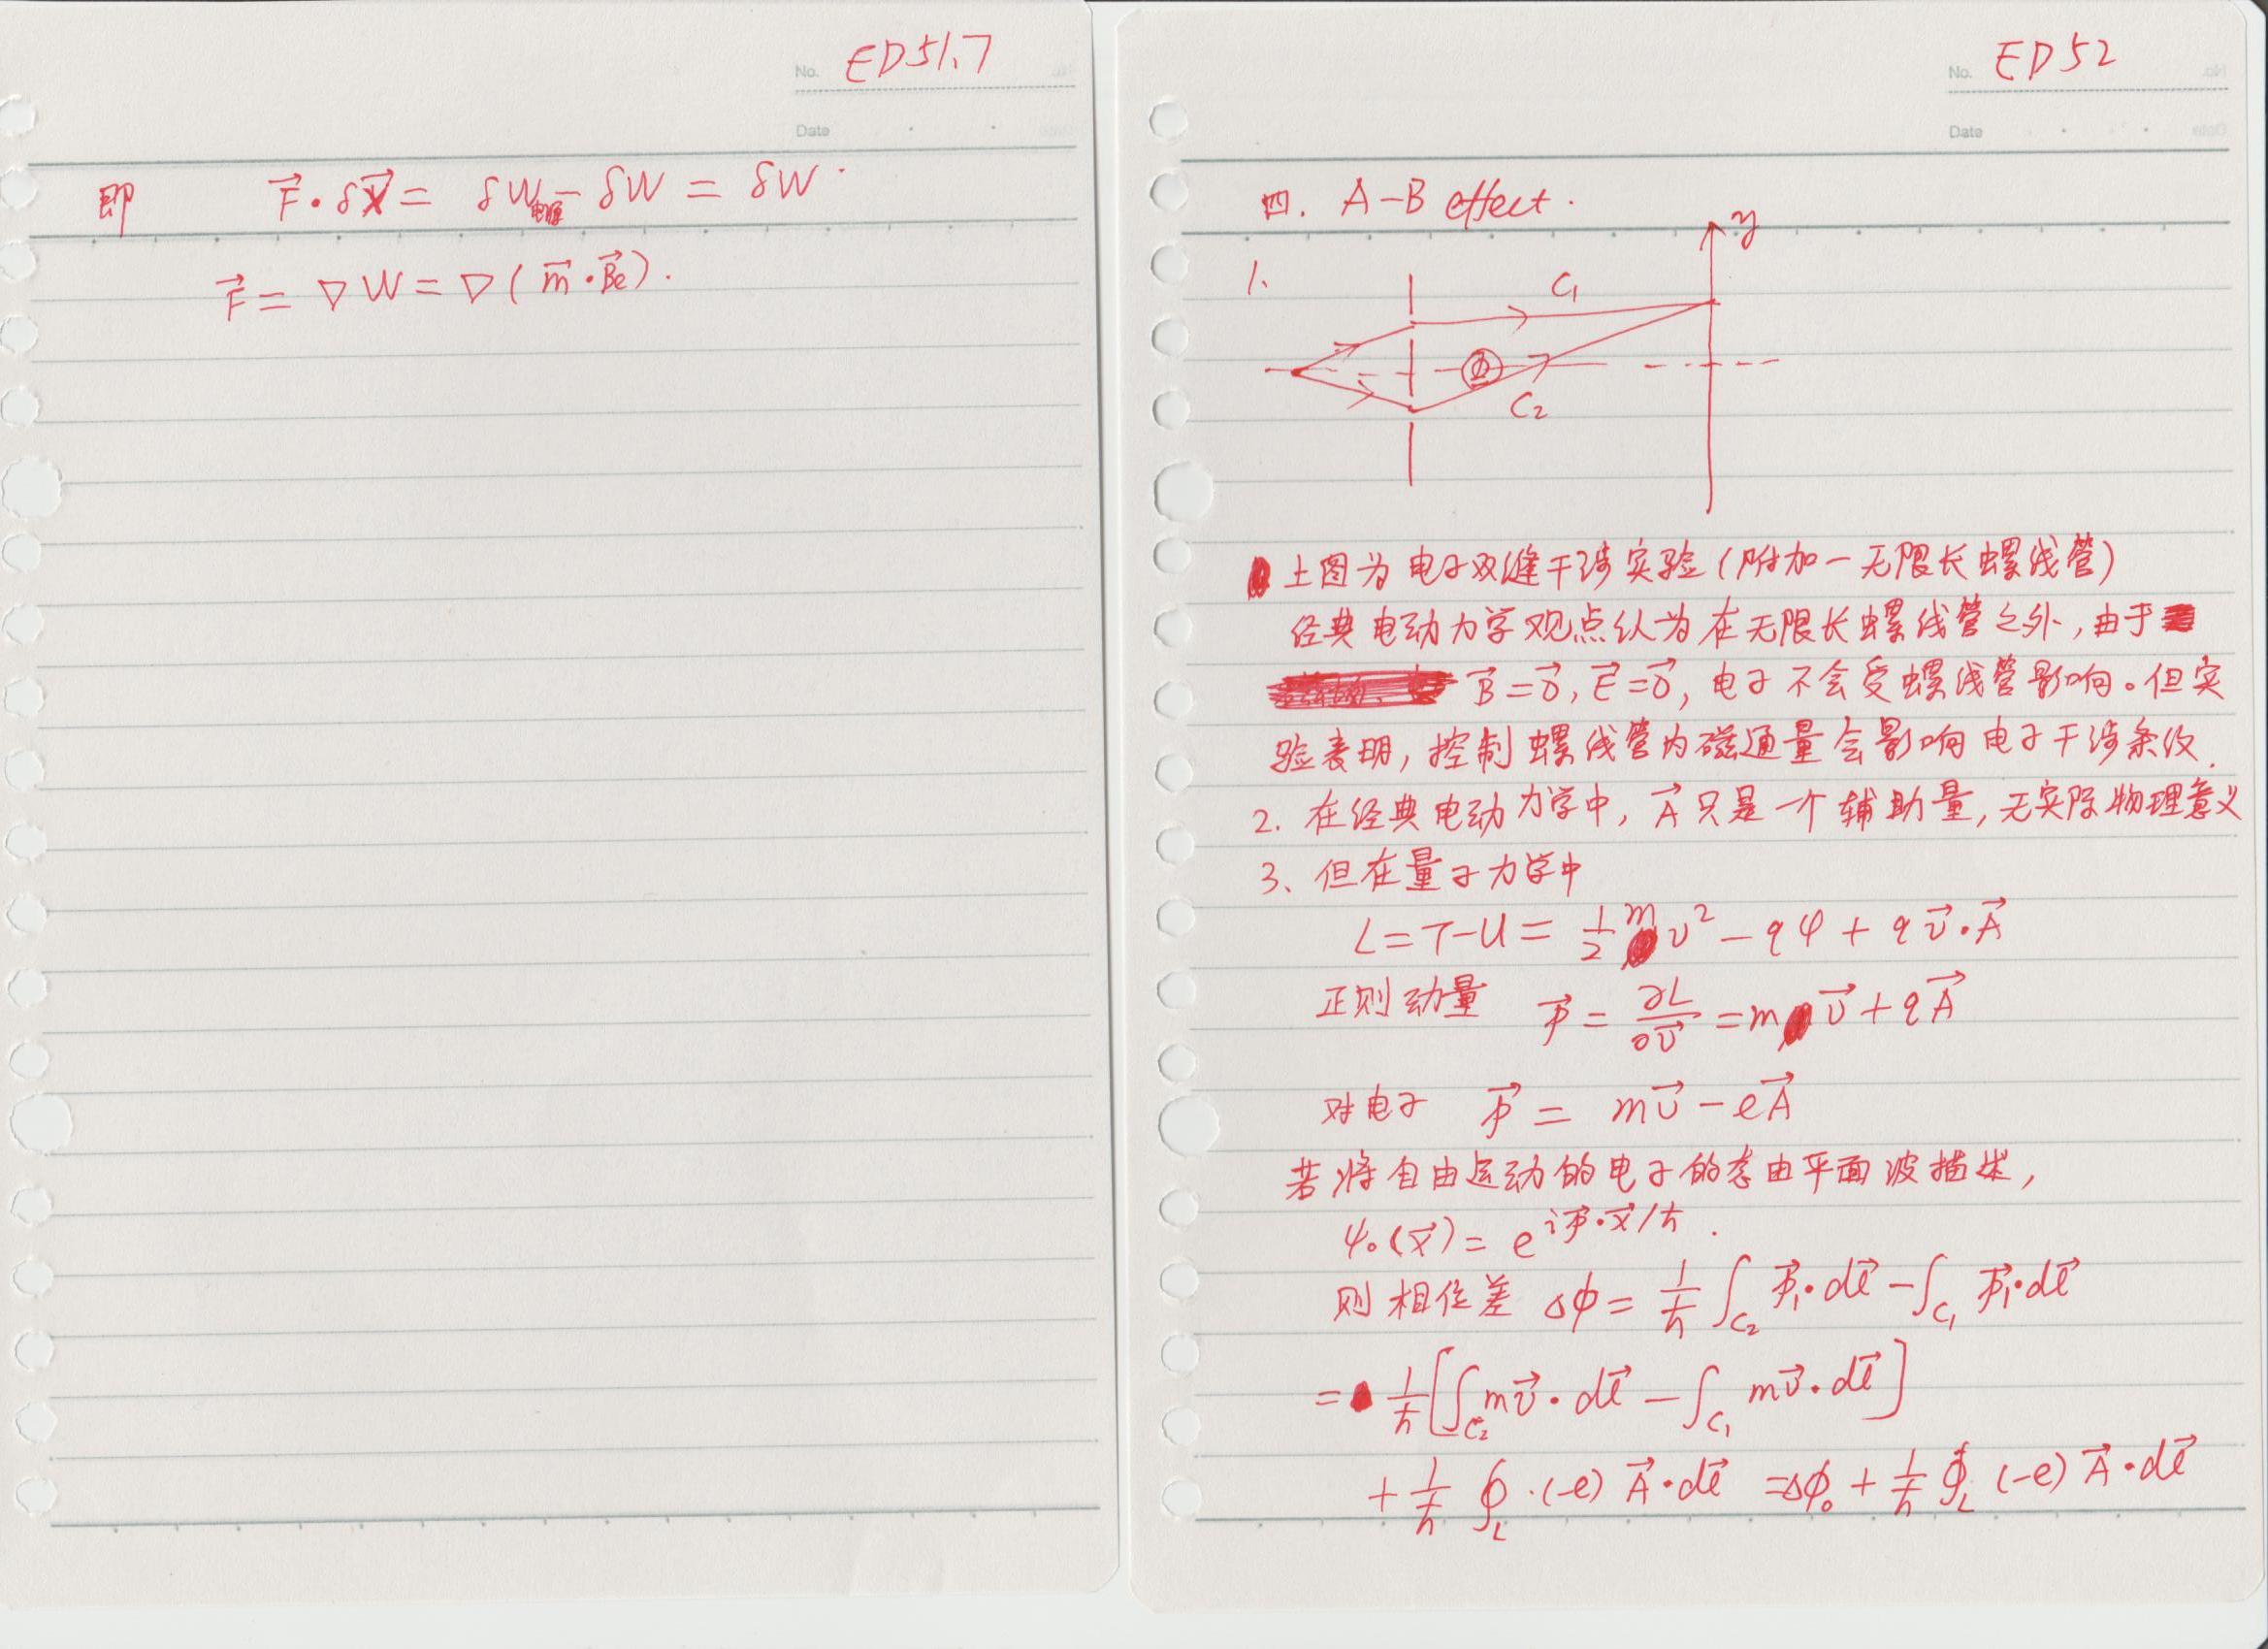 No. ED51.7
Date
即 $\vec{F}\cdot\delta\vec{x} = \delta W_{电源} - \delta W = \delta W$.
$\vec{F} = \nabla W = \nabla(\vec{m}\cdot\vec{B}_e)$.
No. ED52
Date
四. A-B effect.
1.
y
C₁
Φ
C₂
上图为电子双缝干涉实验(附加一无限长螺线管)
经典电动力学观点认为在无限长螺线管之外,由于
$\vec{B}=\vec{0}, \vec{E}=\vec{0}$, 电子不会受螺线管影响。但实
验表明,控制螺线管内磁通量会影响电子干涉条纹.
2. 在经典电动力学中, $\vec{A}$ 只是一个辅助量,无实际物理意义
3、但在量子力学中
$L = T - U = \frac{1}{2}mv^2 - q\varphi + q\vec{v}\cdot\vec{A}$
正则动量 $\vec{p} = \frac{\partial L}{\partial\vec{v}} = m\vec{v} + q\vec{A}$
对电子 $\vec{p} = m\vec{v} - e\vec{A}$
若将自由运动的电子的态由平面波描述,
$\psi_0(\vec{x}) = e^{i\vec{p}\cdot\vec{x}/\hbar}$.
则相位差 $\Delta\phi = \frac{1}{\hbar}\int_{C_2}\vec{p}_1\cdot d\vec{l} - \int_{C_1}\vec{p}_1\cdot d\vec{l}$
$= \frac{1}{\hbar}\left[\int_{C_2} m\vec{v}\cdot d\vec{l} - \int_{C_1} m\vec{v}\cdot d\vec{l}\right]$
$+ \frac{1}{\hbar}\oint_L\cdot(-e)\vec{A}\cdot d\vec{l} = \Delta\phi_0 + \frac{1}{\hbar}\oint_L(-e)\vec{A}\cdot d\vec{l}$